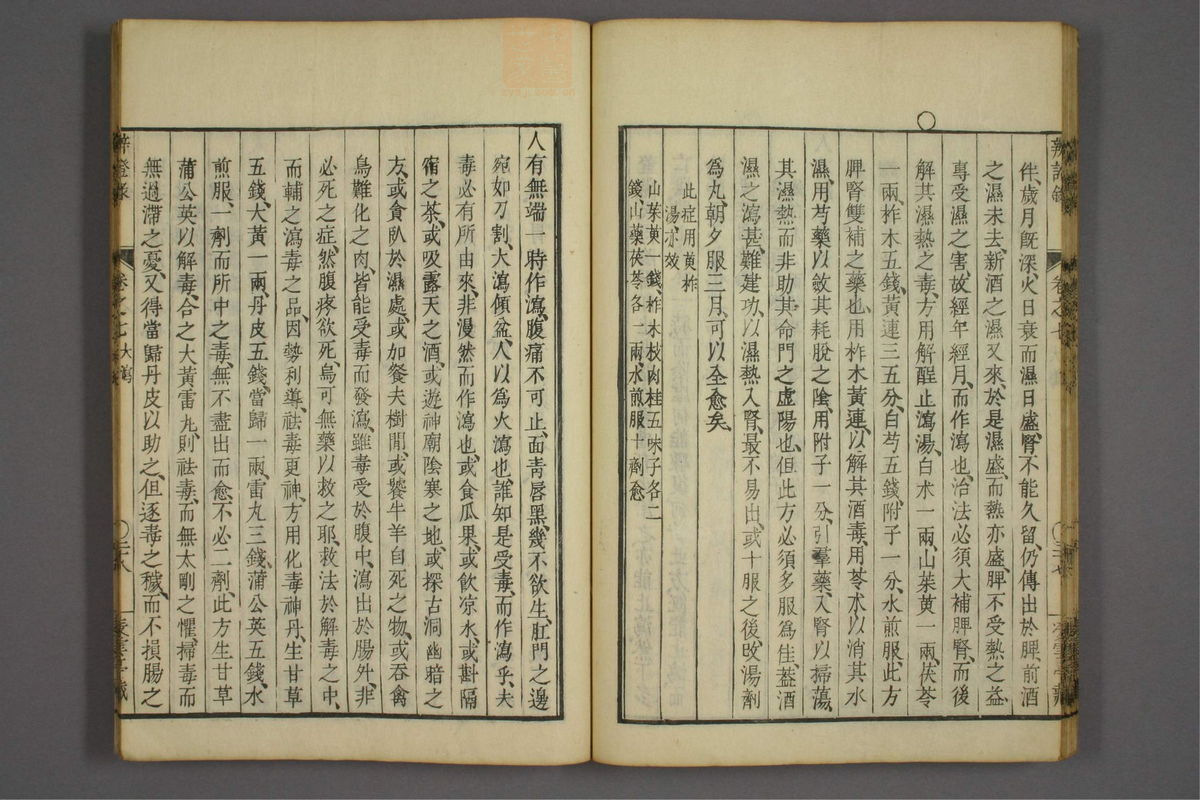 伴歲月既深、火日衰而濕日盛、腎不能久留、仍傳出於脾、前酒
之濕未去、新酒之濕又來、於是濕盛、而熱亦盛、脾不受熱之益、
專受濕之害、故經年經月、而作瀉也、治法必須大補脾腎、而後
解其濕熱之毒、方用解酲止瀉湯、白术一兩、山茱萸一兩、茯苓
一兩、柞木五錢、黃連三五分、白芍五錢、附子一分、水煎服、此方
脾腎雙補之藥也、用柞木黃連、以解其酒毒、用苓术、以消其水
濕、用芍藥以斂其耗脫之陰、用附子一分、引羣藥、入腎以掃蕩、
其濕熱而非助其命門之虛陽也、但此方必須多服爲佳、葢酒
濕之瀉甚、難建功、以濕熱入腎、最不易出、或十服之後、改湯劑
爲丸、朝夕服三月、可以全愈矣、
此症用萸柞
湯、亦效
山茱萸一錢、柞木枝、肉桂五味子各二
錢、山藥茯苓各一兩、水煎服十劑愈
辨證錄
卷之七
人有無端一時作瀉、腹痛不可止、面青唇黑、幾不欲生、肛門之邊
宛如刀割、大瀉傾盆、人以爲火瀉也、誰知是受毒、而作瀉乎、夫
毒必有所由來、非漫然而作瀉也、或食瓜果、或飲凉水、或斟隔
宿之茶、或吸露天之酒、或遊神廟陰寒之地、或探古洞幽暗之
方、或貪臥於濕處、或加餐夫樹間、或饕牛羊自死之物、或吞禽
鳥難化之肉、皆能受毒而發瀉、雖毒受於腹中、瀉出於腸外、非
必死之症、然腹疼欲死、烏可無藥以救之耶、救法於解毒之中、
而輔之瀉毒之品、因勢利導、祛毒更神、方用化毒神丹、生甘草
五錢、大黃一兩、丹皮五錢、當歸一兩、雷丸三錢、蒲公英五錢、水
煎服、一劑而所中之毒、無不盡出而愈、不必二劑、此方生甘草
蒲公英以解毒、合之大黃雷丸、則祛毒、而無太剛之懼、掃毒而
無過滯之憂、又得當歸丹皮以助之、但逐毒之穢、而不損腸之
辨證錄
卷之七
大瀉
三十八